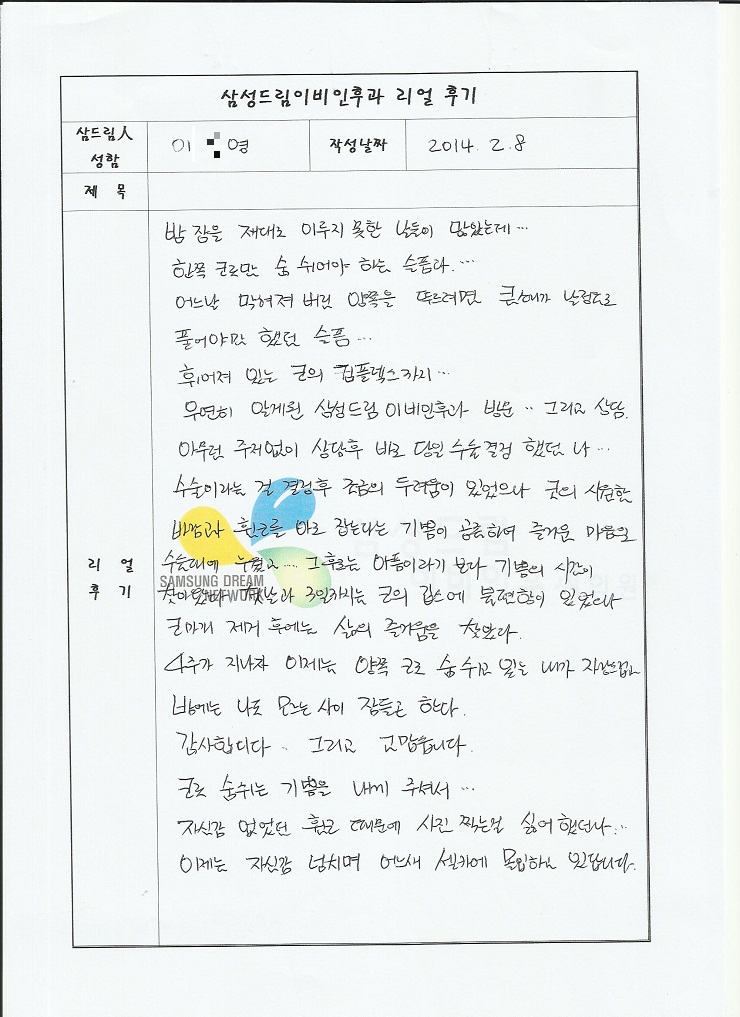 삼성드림이비인후과 리얼 후기
삼드림人 성함
이 영
작성날짜
2014. 2. 8
제 목
리 얼 후 기
밤 잠을 제대로 이루지 못한 날들이 많았는데…
한쪽 코로만 숨 쉬어야 하는 슬픔과…
어느날 막혀져 버린 양쪽을 뚜르려면 큰 날정도로
풀어야만 했던 슬픔…
휘어져 있는 코의 컴플렉스까지…
우연히 알게된 삼성드림 이비인후과 방문.. 그리고 상담.
아무런 주저없이 상담후 바로 당일 수술결정 했던 나…
수술이라는 걸 결정후 조금의 두려움이 있었으나 콧의 시원한
바람과 휜코를 바로 잡는다는 기쁨이 공존하여 즐거운 마음으로
수술대에 누웠고.... 그후로는 아픔이라기 보다 기쁨의 시간이
찾아왔다 첫날과 3일까지는 코의 에 불편함이 있었으나
코마개 제거 후에는 삶의 즐거움을 찾았다.
4주가 지나자 이제는 양쪽 코로 숨쉬고 있는 내가 자랑스럽고
밤에는 나도 모르는 사이 잠들곤 한다.
감사합니다.. 그리고 고맙습니다.
코로 숨쉬는 기쁨을 내게 주셔서…
자신감 없었던 휜코 때문에 사진 찍는걸 싫어 했던나...
이제는 자신감 넘치며 어느새 셀카에 몰입하고 있답니다.
SAMSUNG DREAM
NETWORK